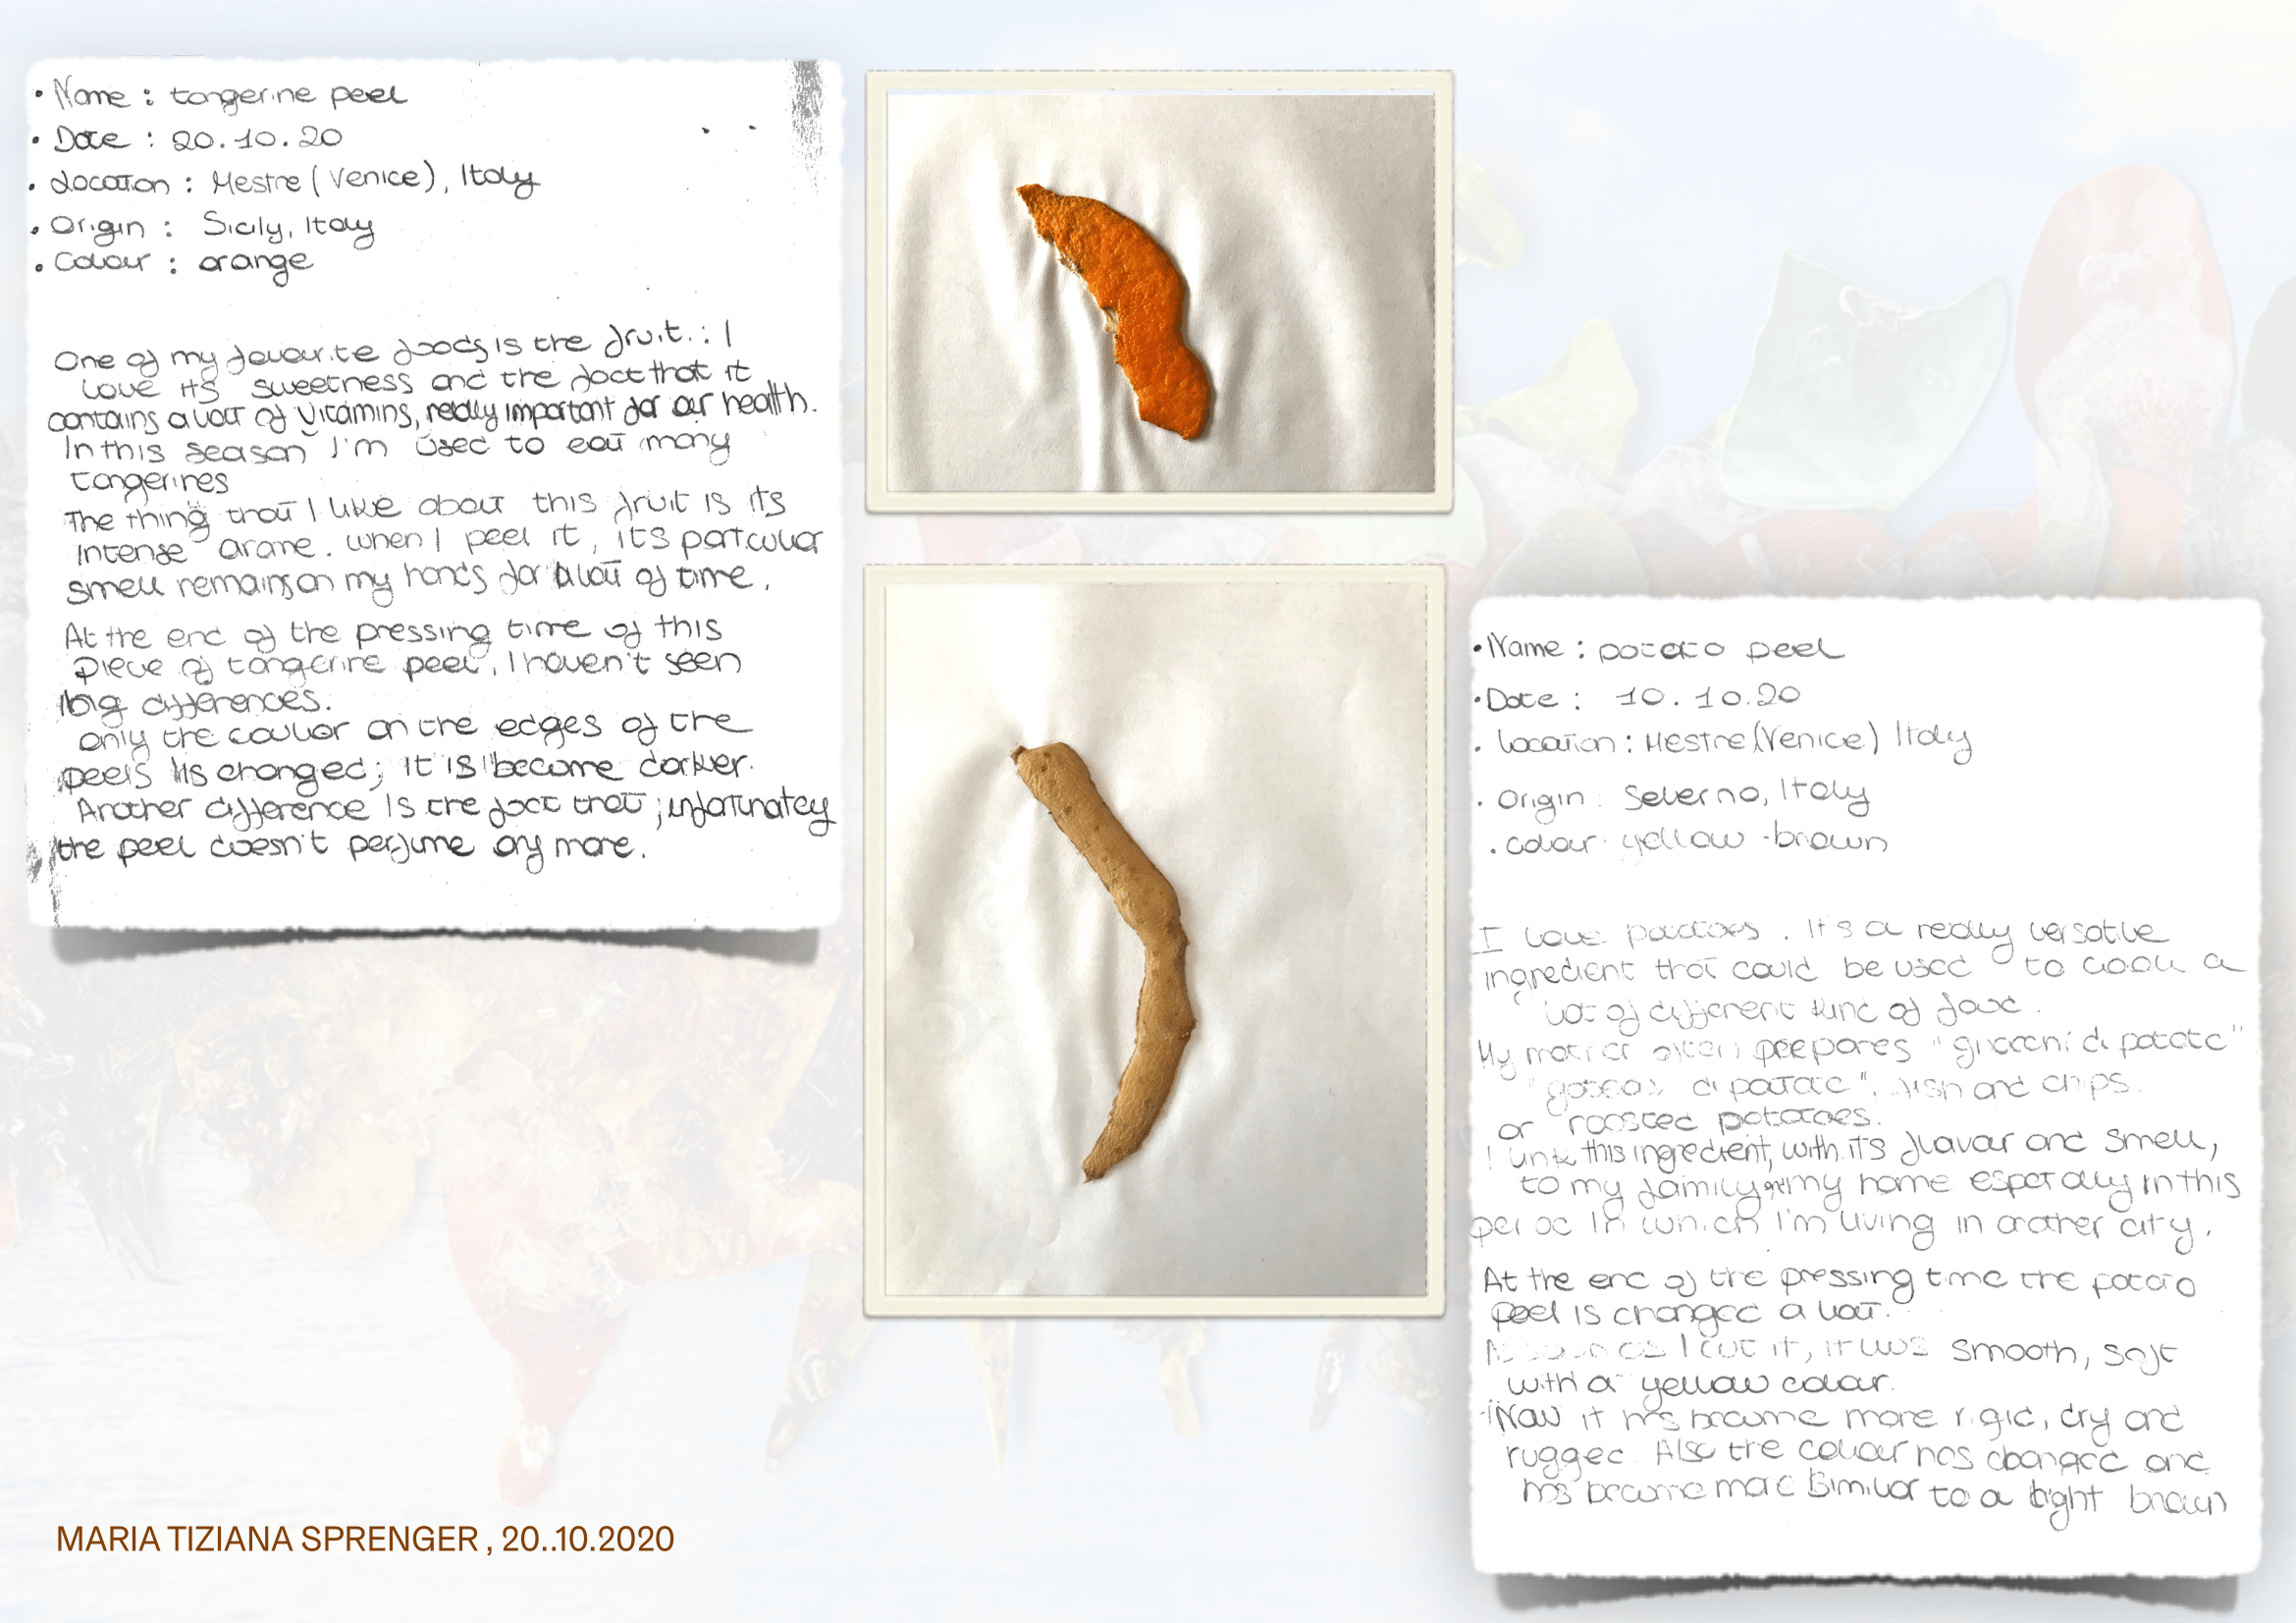 • Name : tangerine peel
• Date : 20.10.20
• Location : Mestre (Venice), Italy
• Origin : Sicily, Italy
• Colour : orange
One of my favourite foods is the fruit. : I
love its sweetness and the fact that it
contains a lot of vitamins, really important for our health.
In this season I'm used to eat many
tangerines
The thing that I like about this fruit is its
intense arome. When I peel it, its particular
smell remains on my hands for a lot of time.
At the end of the pressing time of this
piece of tangerine peel, I haven't seen
big differences.
only the colour on the edges of the
peels is changed; it is become darker.
Another difference is the fact that ; unfortunatey
the peel doesn't perfume any more.
• Name : potato peel
• Date : 10.10.20
• Location : Mestre (Venice) Italy
• Origin : Selerno, Italy
• colour yellow-brown
I love potatoes. It's a really versatile
ingredient that could be used to cook a
lot of different kind of food.
My mother often prepares "gnocchi di patate"
di patate", fish and chips.
or roosted potatoes.
I link this ingredient, with it's flavour and smell,
to my family my home in this
period in which I'm living in another city.
At the end of the pressing time the potato
peel is changed a lot.
As soon as I cut it, it was smooth, soft
with a yellow colour.
Now it has become more rigid, dry and
rugged. Also the colour has changed and
has become more similar to a light brown
MARIA TIZIANA SPRENGER , 20..10.2020